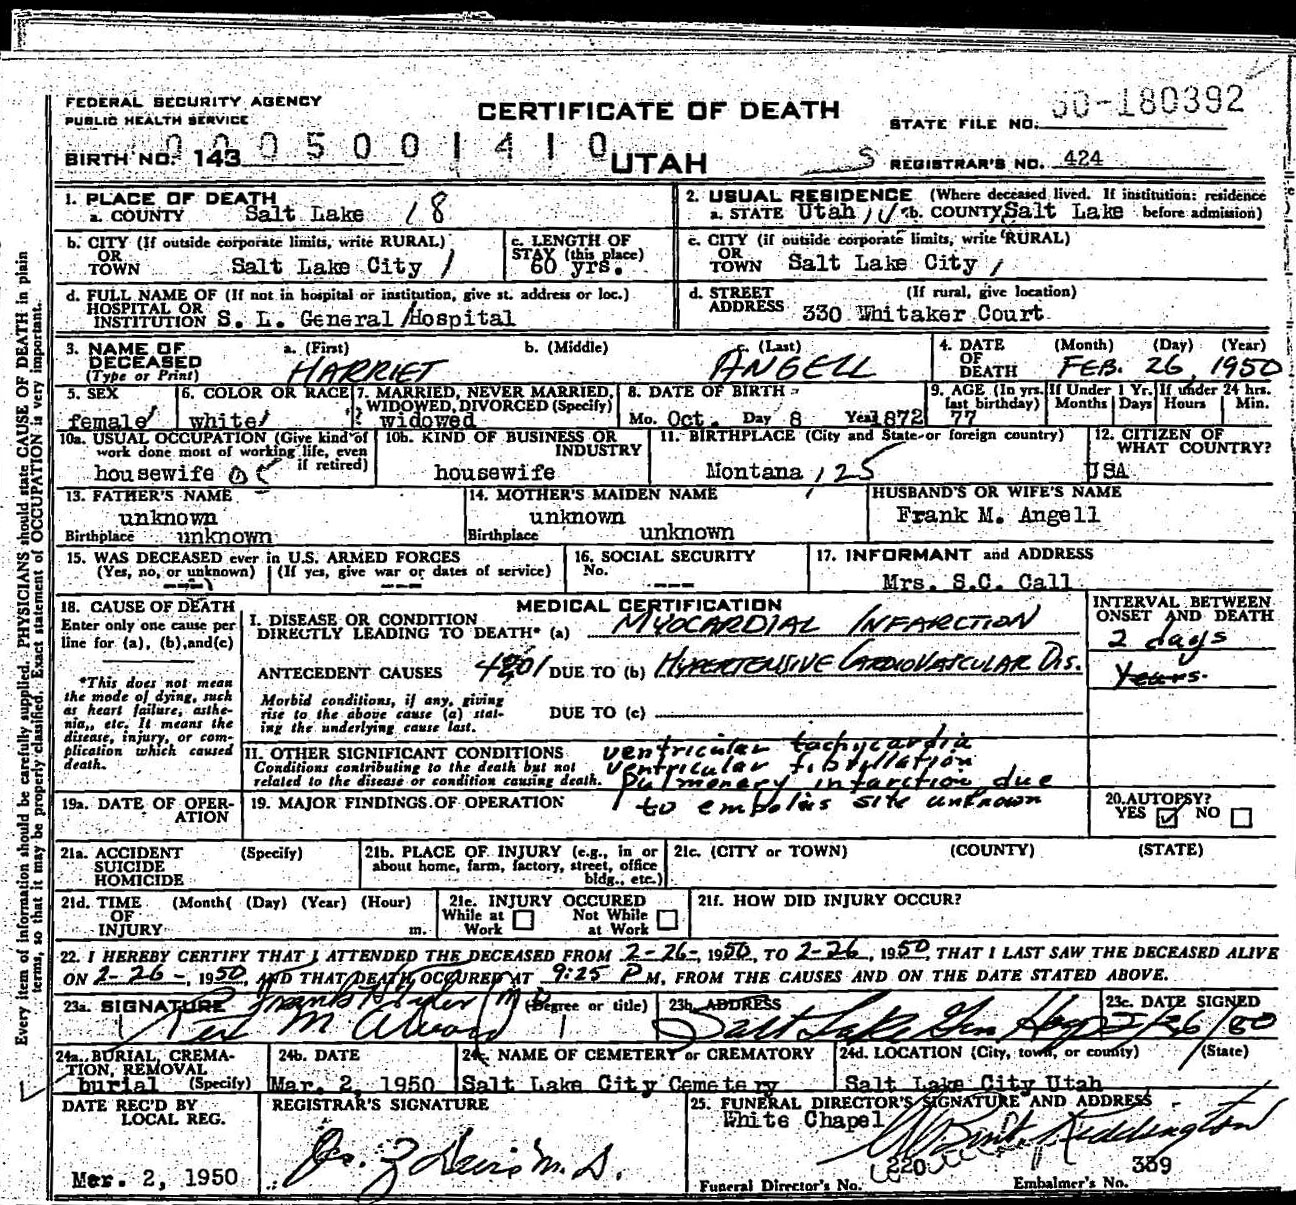 FEDERAL SECURITY AGENCY
PUBLIC HEALTH SERVICE
CERTIFICATE OF DEATH
STATE FILE NO. 50-180392
0005001410
BIRTH NO. 143
UTAH
REGISTRAR'S NO. 424
1. PLACE OF DEATH
a. COUNTY Salt Lake 18
2. USUAL RESIDENCE (Where deceased lived. If institution: residence
a. STATE Utah b. COUNTY Salt Lake before admission)
b. CITY (If outside corporate limits, write RURAL)
OR
TOWN Salt Lake City 1
c. LENGTH OF
STAY (this place)
60 yrs.
c. CITY (if outside corporate limits, write RURAL)
OR
TOWN Salt Lake City
d. FULL NAME OF (If not in hospital or institution, give st. address or loc.)
HOSPITAL OR
INSTITUTION S. L. General Hospital
d. STREET (If rural, give location)
ADDRESS 330 Whitaker Court
3. NAME OF DECEASED
(Type or Print)
a. (First) b. (Middle) c. (Last)
HARRIET ANGELL
4. DATE OF DEATH (Month) (Day) (Year)
FEB. 26, 1950
5. SEX
female
6. COLOR OR RACE
white
7. MARRIED, NEVER MARRIED,
WIDOWED, DIVORCED (Specify)
widowed
8. DATE OF BIRTH
Mo. Oct. Day 8 Year 1872
9. AGE (In yrs. last birthday)
77
If Under 1 Yr. Months Days
If under 24 hrs. Hours Min.
10a. USUAL OCCUPATION (Give kind of
work done most of working life, even
if retired)
housewife
10b. KIND OF BUSINESS OR
INDUSTRY
housewife
11. BIRTHPLACE (City and State or foreign country)
Montana 125
12. CITIZEN OF
WHAT COUNTRY?
USA
13. FATHER'S NAME
unknown
Birthplace unknown
14. MOTHER'S MAIDEN NAME
unknown
Birthplace unknown
HUSBAND'S OR WIFE'S NAME
Frank M. Angell
15. WAS DECEASED ever in U.S. ARMED FORCES
(Yes, no, or unknown) (If yes, give war or dates of service)
---) ---
16. SOCIAL SECURITY
No. ---
17. INFORMANT and ADDRESS
Mrs. S.C. Call
18. CAUSE OF DEATH
Enter only one cause per
line for (a), (b), and (c)
*This does not mean
the mode of dying, such
as heart failure, asthe-
nia, etc. It means the
disease, injury, or com-
plication which caused
death.
MEDICAL CERTIFICATION
I. DISEASE OR CONDITION
DIRECTLY LEADING TO DEATH* (a) MYOCARDIAL INFARCTION
ANTECEDENT CAUSES 4201 DUE TO (b) HYPERTENSIVE CARDIOVASCULAR DIS.
Morbid conditions, if any, giving
rise to the above cause (a) stat-
ing the underlying cause last.
DUE TO (c)
INTERVAL BETWEEN
ONSET AND DEATH
2 days
Years.
II. OTHER SIGNIFICANT CONDITIONS
Conditions contributing to the death but not
related to the disease or condition causing death.
ventricular tachycardia
ventricular fibrillation
pulmonery infarction due
to embolus site unknown
19a. DATE OF OPER-
ATION
19. MAJOR FINDINGS OF OPERATION
20. AUTOPSY?
YES ☑ NO ☐
21a. ACCIDENT
SUICIDE
HOMICIDE
(Specify)
21b. PLACE OF INJURY (e.g., in or
about home, farm, factory, street, office
bldg., etc.)
21c. (CITY or TOWN) (COUNTY) (STATE)
21d. TIME (Month( (Day) (Year) (Hour)
OF
INJURY m.
21e. INJURY OCCURED
While at Work Not While at Work
21f. HOW DID INJURY OCCUR?
22. I HEREBY CERTIFY THAT I ATTENDED THE DECEASED FROM 2-26-, 1950, TO 2-26, 1950, THAT I LAST SAW THE DECEASED ALIVE
ON 2-26-, 1950 AND THAT DEATH OCCURED AT 9:25 P M, FROM THE CAUSES AND ON THE DATE STATED ABOVE.
23a. SIGNATURE (Degree or title)
23b. ADDRESS
Salt Lake Gen Hosp
23c. DATE SIGNED
2/26/50
24a. BURIAL, CREMA-
TION, REMOVAL
burial (Specify)
24b. DATE
Mar. 2, 1950
24c. NAME OF CEMETERY or CREMATORY
Salt Lake City Cemetery
24d. LOCATION (City, town, or county) (State)
Salt Lake City Utah
DATE REC'D BY
LOCAL REG.
Mar. 2, 1950
REGISTRAR'S SIGNATURE
25. FUNERAL DIRECTOR'S SIGNATURE AND ADDRESS
White Chapel
Funeral Director's No. 220
Embalmer's No. 339
Every item of information should be carefully supplied. PHYSICIANS should state CAUSE OF DEATH in plain
terms, so that it may be properly classified. Exact statement of OCCUPATION is very important.